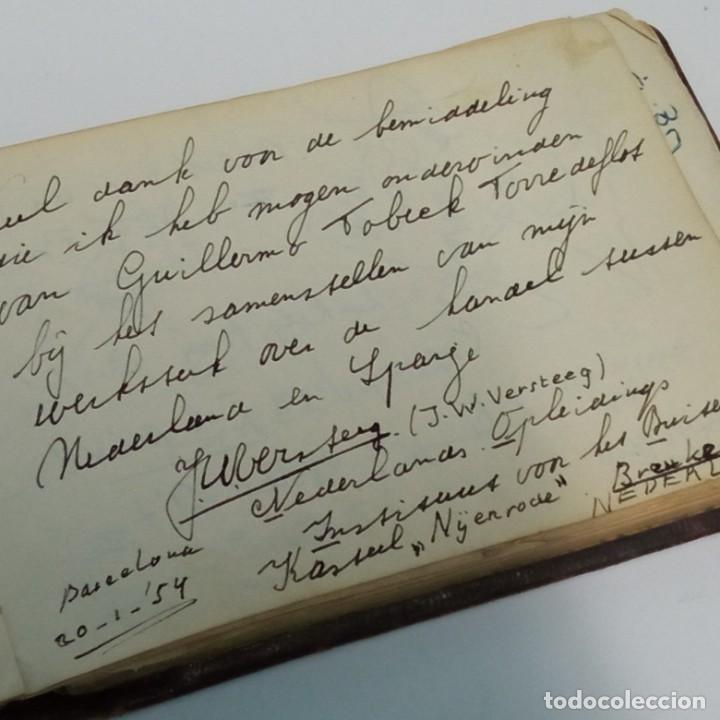 Veel dank voor de bemiddeling
die ik heb mogen ondervinden
van Guillermo Tobeck Torredeflot
bij het samenstellen van mijn
werkstuk over de handel tussen
Nederland en Spanje
JWVersteeg (J.W. Versteeg)
Nederlands Opleidings
Instituut voor het Buiten
Kasteel „Nijenrode” Breuke
NEDERL
Barcelona
20-1-'54
todocoleccion